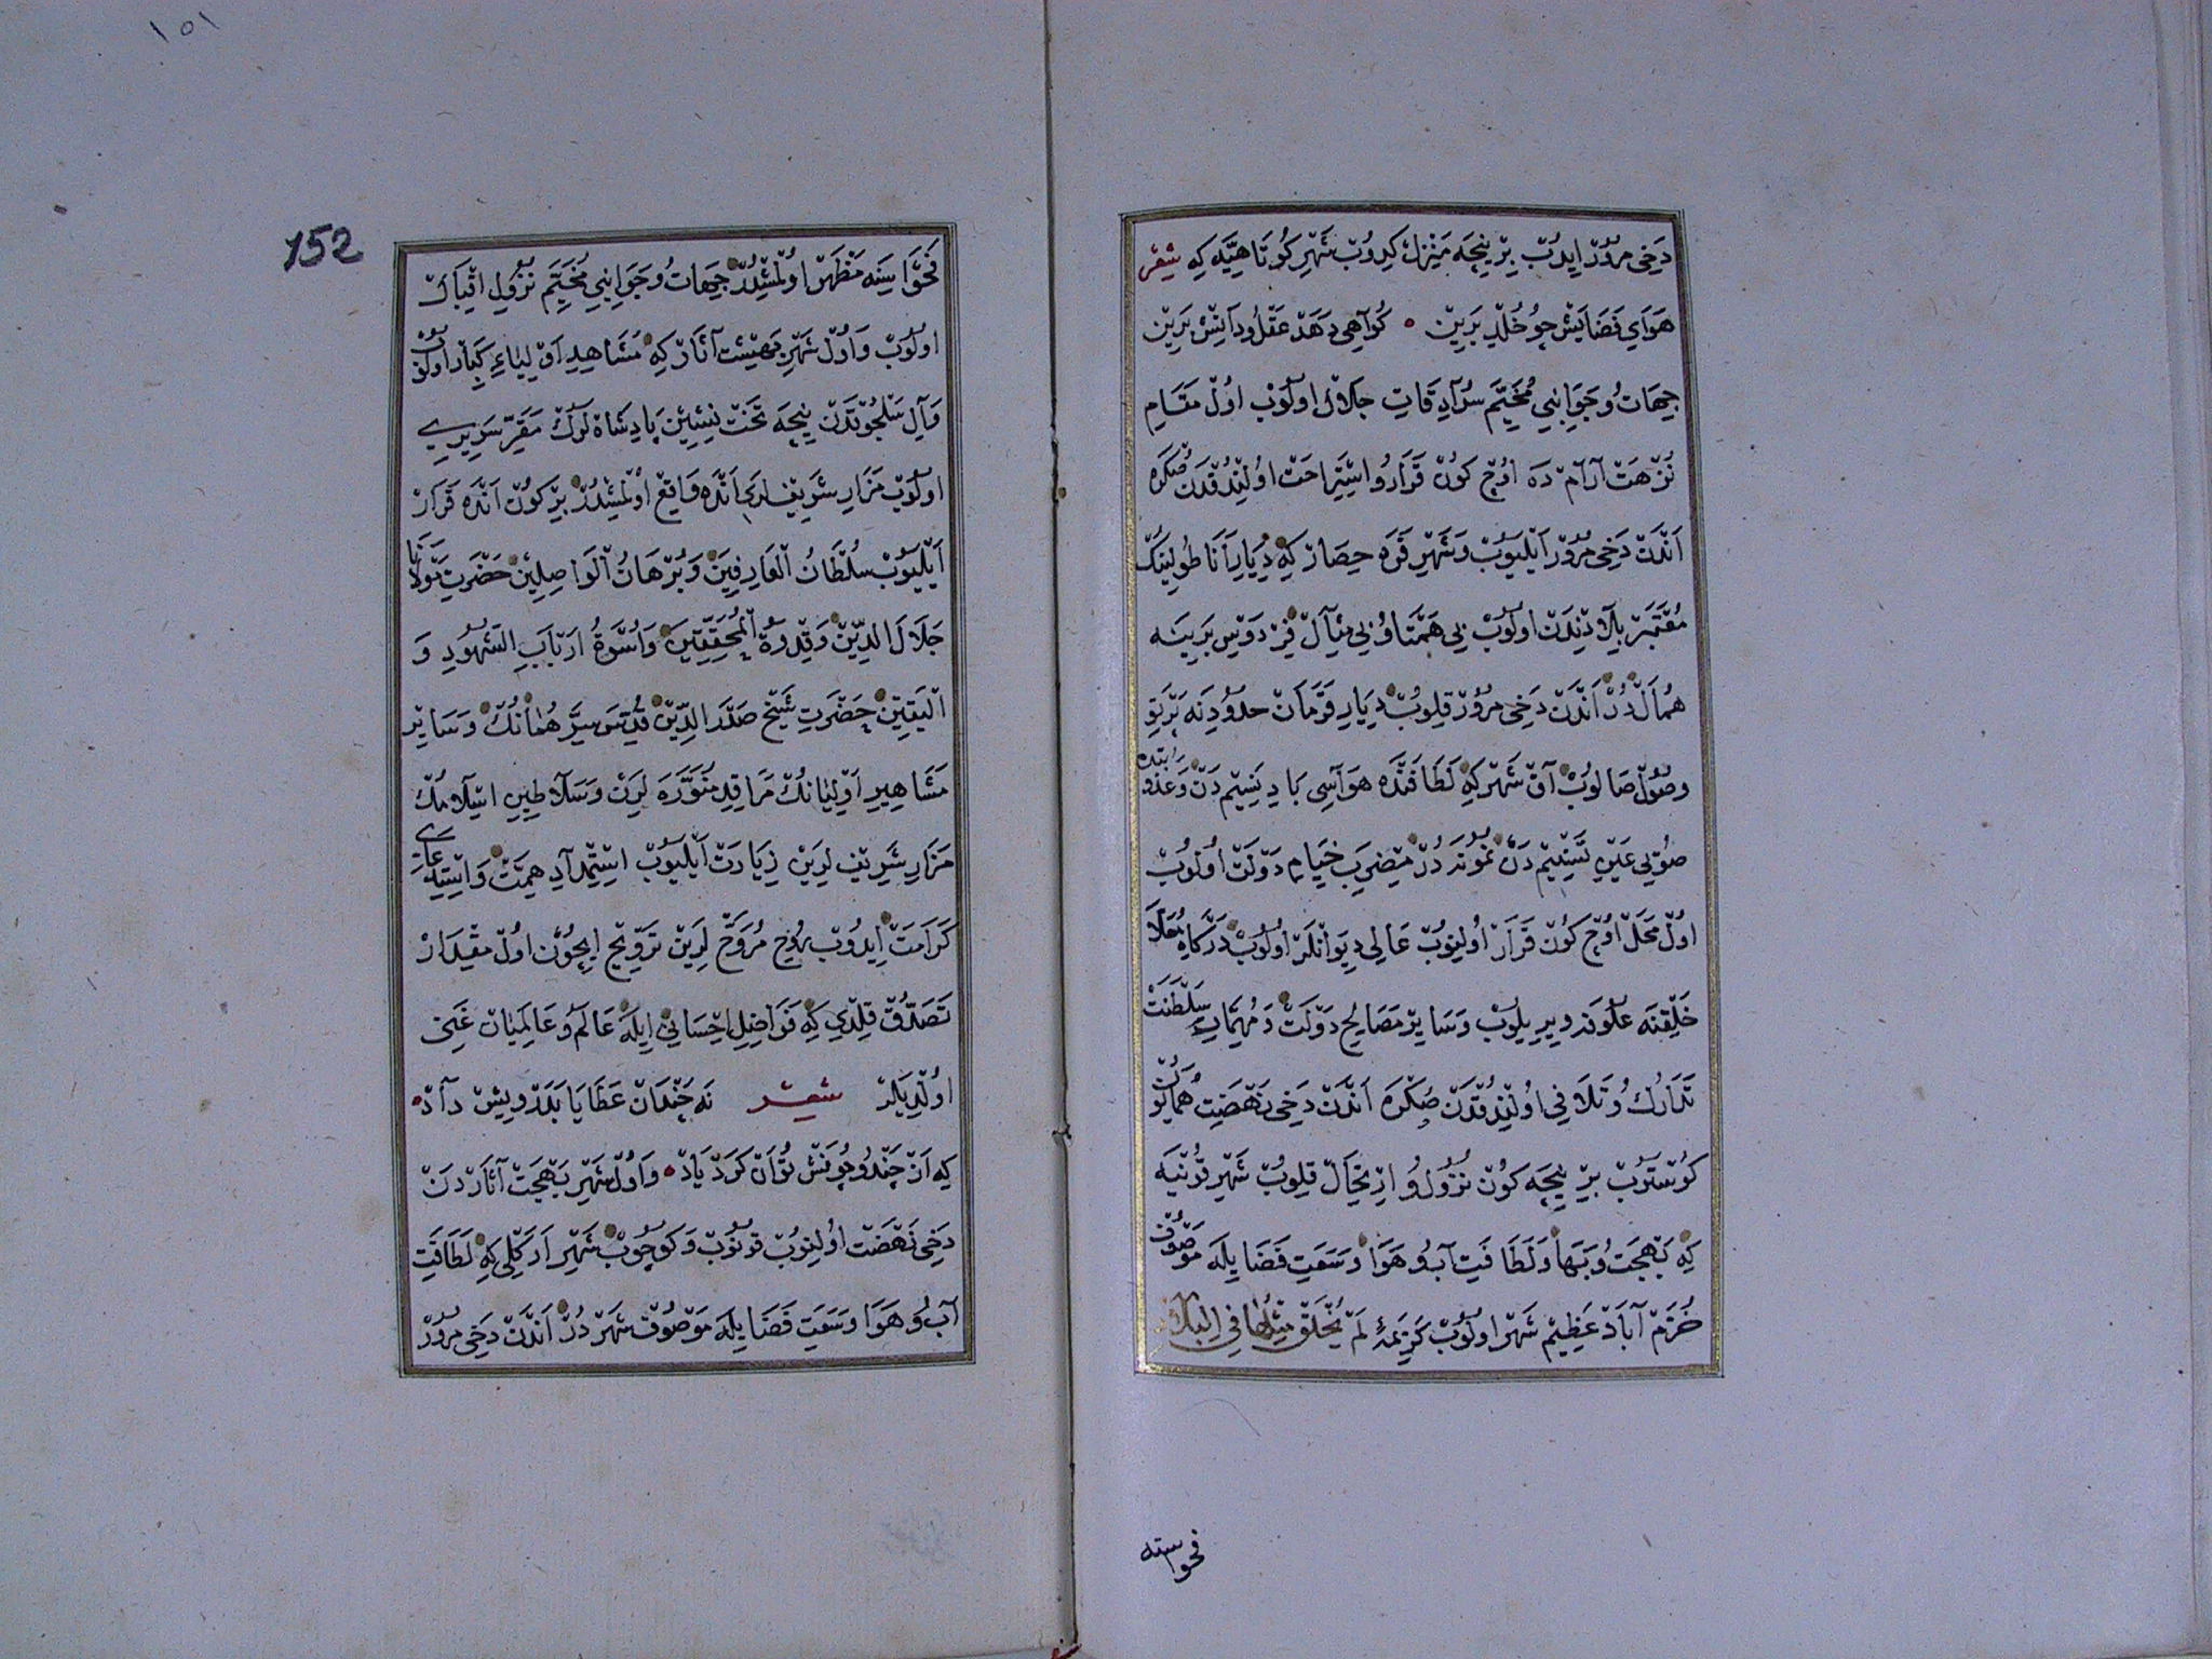 دخی مرور ایدوب بر نیچه منزل کیدوب شهر کوتاهیه که شعر
هوای فضایش چو خلد برین • کواهی دهد عقل و دانش برین
جهات و جوانبی مخیم سرادقات جلال اولوب اول مقام
نزهت آرام ده اوچ کون قرار و استراحت اولندقدن صکره
اندن دخی مرور ایلیوب و شهر قره حصار که دیار اناطولینک
معتبر بلادندن اولوب بی همتا و بی مثال فردوس برینه
همال در اندن دخی مرور قلوب دیار قرمان حدودینه پرتو
وصول صالوب آق شهر که لطافتده هواسی باد نسیم دن وعذوبتده
صویی عین تسنیم دن نمونه در مضرب خیام دولت اولوب
اول محل اوچ کون قرار اولنوب عالی دیوانلر اولوب درکاه معلا
خلقنه علوفه ویریلوب وسایر مصالح دولت ومهمات سلطنت
تدارک و تلافی اولندقدن صکره اندن دخی نهضت همایون
کوستروب بر نیچه کون نزول و ارتحال قلوب شهر قونیه
که بهجت و بها ولطافت آب و هوا وسعت فضا یله موصوف
خرم آباد عظیم شهر اولوب کریمهٔ لم یخلق مثلها فی البلاد
فحواسنه
١٥١
152
فحواسینه مظهر اولمشدر جهات و جوانبی مخیم نزول اقبال
اولوب و اول شهر بهشت آثار که مشاهد اولیاء کبار اولوب
وآل سلجوقدن نیچه تخت نشین پادشاه لرک مقر سریری
اولوب مزار شریف لری انده واقع اولمشدر بر کون انده قرار
ایلیوب سلطان العارفین وبرهان الواصلین حضرت مولانا
جلال الدین وقدوة المحققین واسوة ارباب الشهود و
الیقین حضرت شیخ صدر الدین قدس سرهمانک وسایر
مشاهیر اولیانک مراقد منوره لرین وسلاطین اسلامک
مزار شریف لرین زیارت ایلیوب استمداد همت واستدعای
کرامت ایدوب روح مروح لرین ترویح ایچون اول مقدار
تصدق قلدی که فواضل احسانی ایله عالم و عالمیان غنی
اولدیلر شعر نه چندان عطایا بدرویش داد •
که از چند و چونش توان کرد یاد • واول شهر بهجت آثاردن
دخی نهضت اولنوب قونوب وکوچوب شهر ارکلی که لطافت
آب و هوا وسعت فضا یله موصوف شهر در اندن دخی مرور